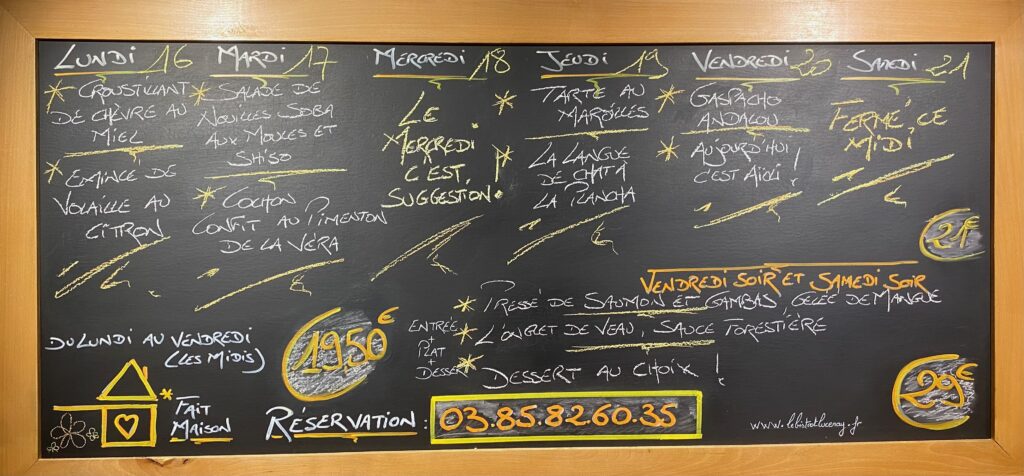 LUNDI 16
CROUSTILLANT
DE CHÈVRE AU
MIEL
EMINCÉ DE
VOLAILLE AU
CITRON
MARDI 17
SALADE DE
NOUILLES SOBA
AUX MOULES ET
SHISO
COCHON
CONFIT AU PIMENTON
DE LA VÉRA
MERCREDI 18
LE
MERCREDI
C'EST,
SUGGESTION!
JEUDI 19
TARTE AU
MAROILLES
LA LANGUE
DE CHAT À
LA PLANCHA
VENDREDI 20
GASPACHO
ANDALOU
AUJOURD'HUI
C'EST AÏOLI!
SAMEDI 21
FERMÉ, CE
MIDI!
21€
VENDREDI SOIR ET SAMEDI SOIR
PRESSÉ DE SAUMON ET GAMBAS, GELÉE DE MANGUE
L'ONGLET DE VEAU, SAUCE FORESTIÈRE
DESSERT AU CHOIX!
ENTRÉE
+
PLAT
+
DESSERT
29€
DU LUNDI AU VENDREDI
(LES MIDIS)
19,50€
* FAIT
MAISON
RÉSERVATION: 03.85.82.60.35
www.lebistrotlucenay.fr